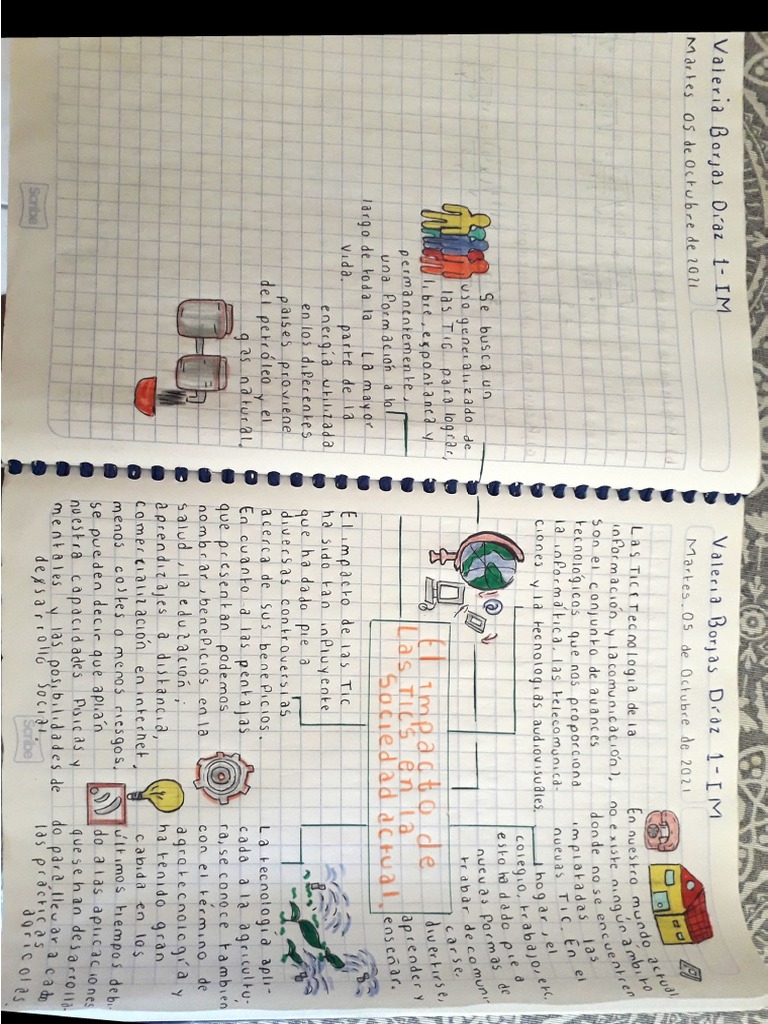 Valeria Borjas Díaz 1-IM
Martes 05 de Octubre de 2021
Se busca un
uso generalizado de
las TIC para lograr,
libre, espontanea y
permanentemente,
una formación a lo
largo de toda la
vida.
La mayor
parte de la
energía utilizada
en los diferentes
países proviene
del petróleo y el
gas natural.
Scribe
Valeria Borjas Díaz 1-IM
Martes. 05 de Octubre de 2021
Las TIC (Tecnología de la
información y la comunicación),
son el conjunto de avances
tecnológicos que nos proporciona
la informática, las telecomunica-
ciones y la tecnologías audiovisuales.
En nuestro mundo actual
no existe ningun ambito
donde no se encuentren
implatadas las
nuevas TIC. En el
hogar, el
colegio, trabajo, etc.
esto ha dado pie a
nuevas formas de
trabar de comuni-
carse,
divertirse,
aprender y
enseñar.
@
El impacto de
las TIC's en la
sociedad actual.
El impacto de las TIC
ha sido tan influyente
que ha dado pie a
diversas controversias
acerca de sus beneficios.
En cuanto a las pentajas
que presentan podemos
nombrar, beneficios en la
salud, la educación;
aprendizajes a distancia,
comercialización en internet,
menos costes o menos riesgos,
se pueden decir que aplían
nuestra capacidades físicas y
mentales y las posibilidades de
desarrollo social.
La tecnología apli-
cada a la agricultu-
ra, se conoce tambien
con el término de
agrotecnología y
ha tenido gran
cabida en los
últimos tiempos debi-
do a las aplicaciones
que se han desarrolla-
do para, llevar a cabo
las prácticas
agricolas.
Scribe